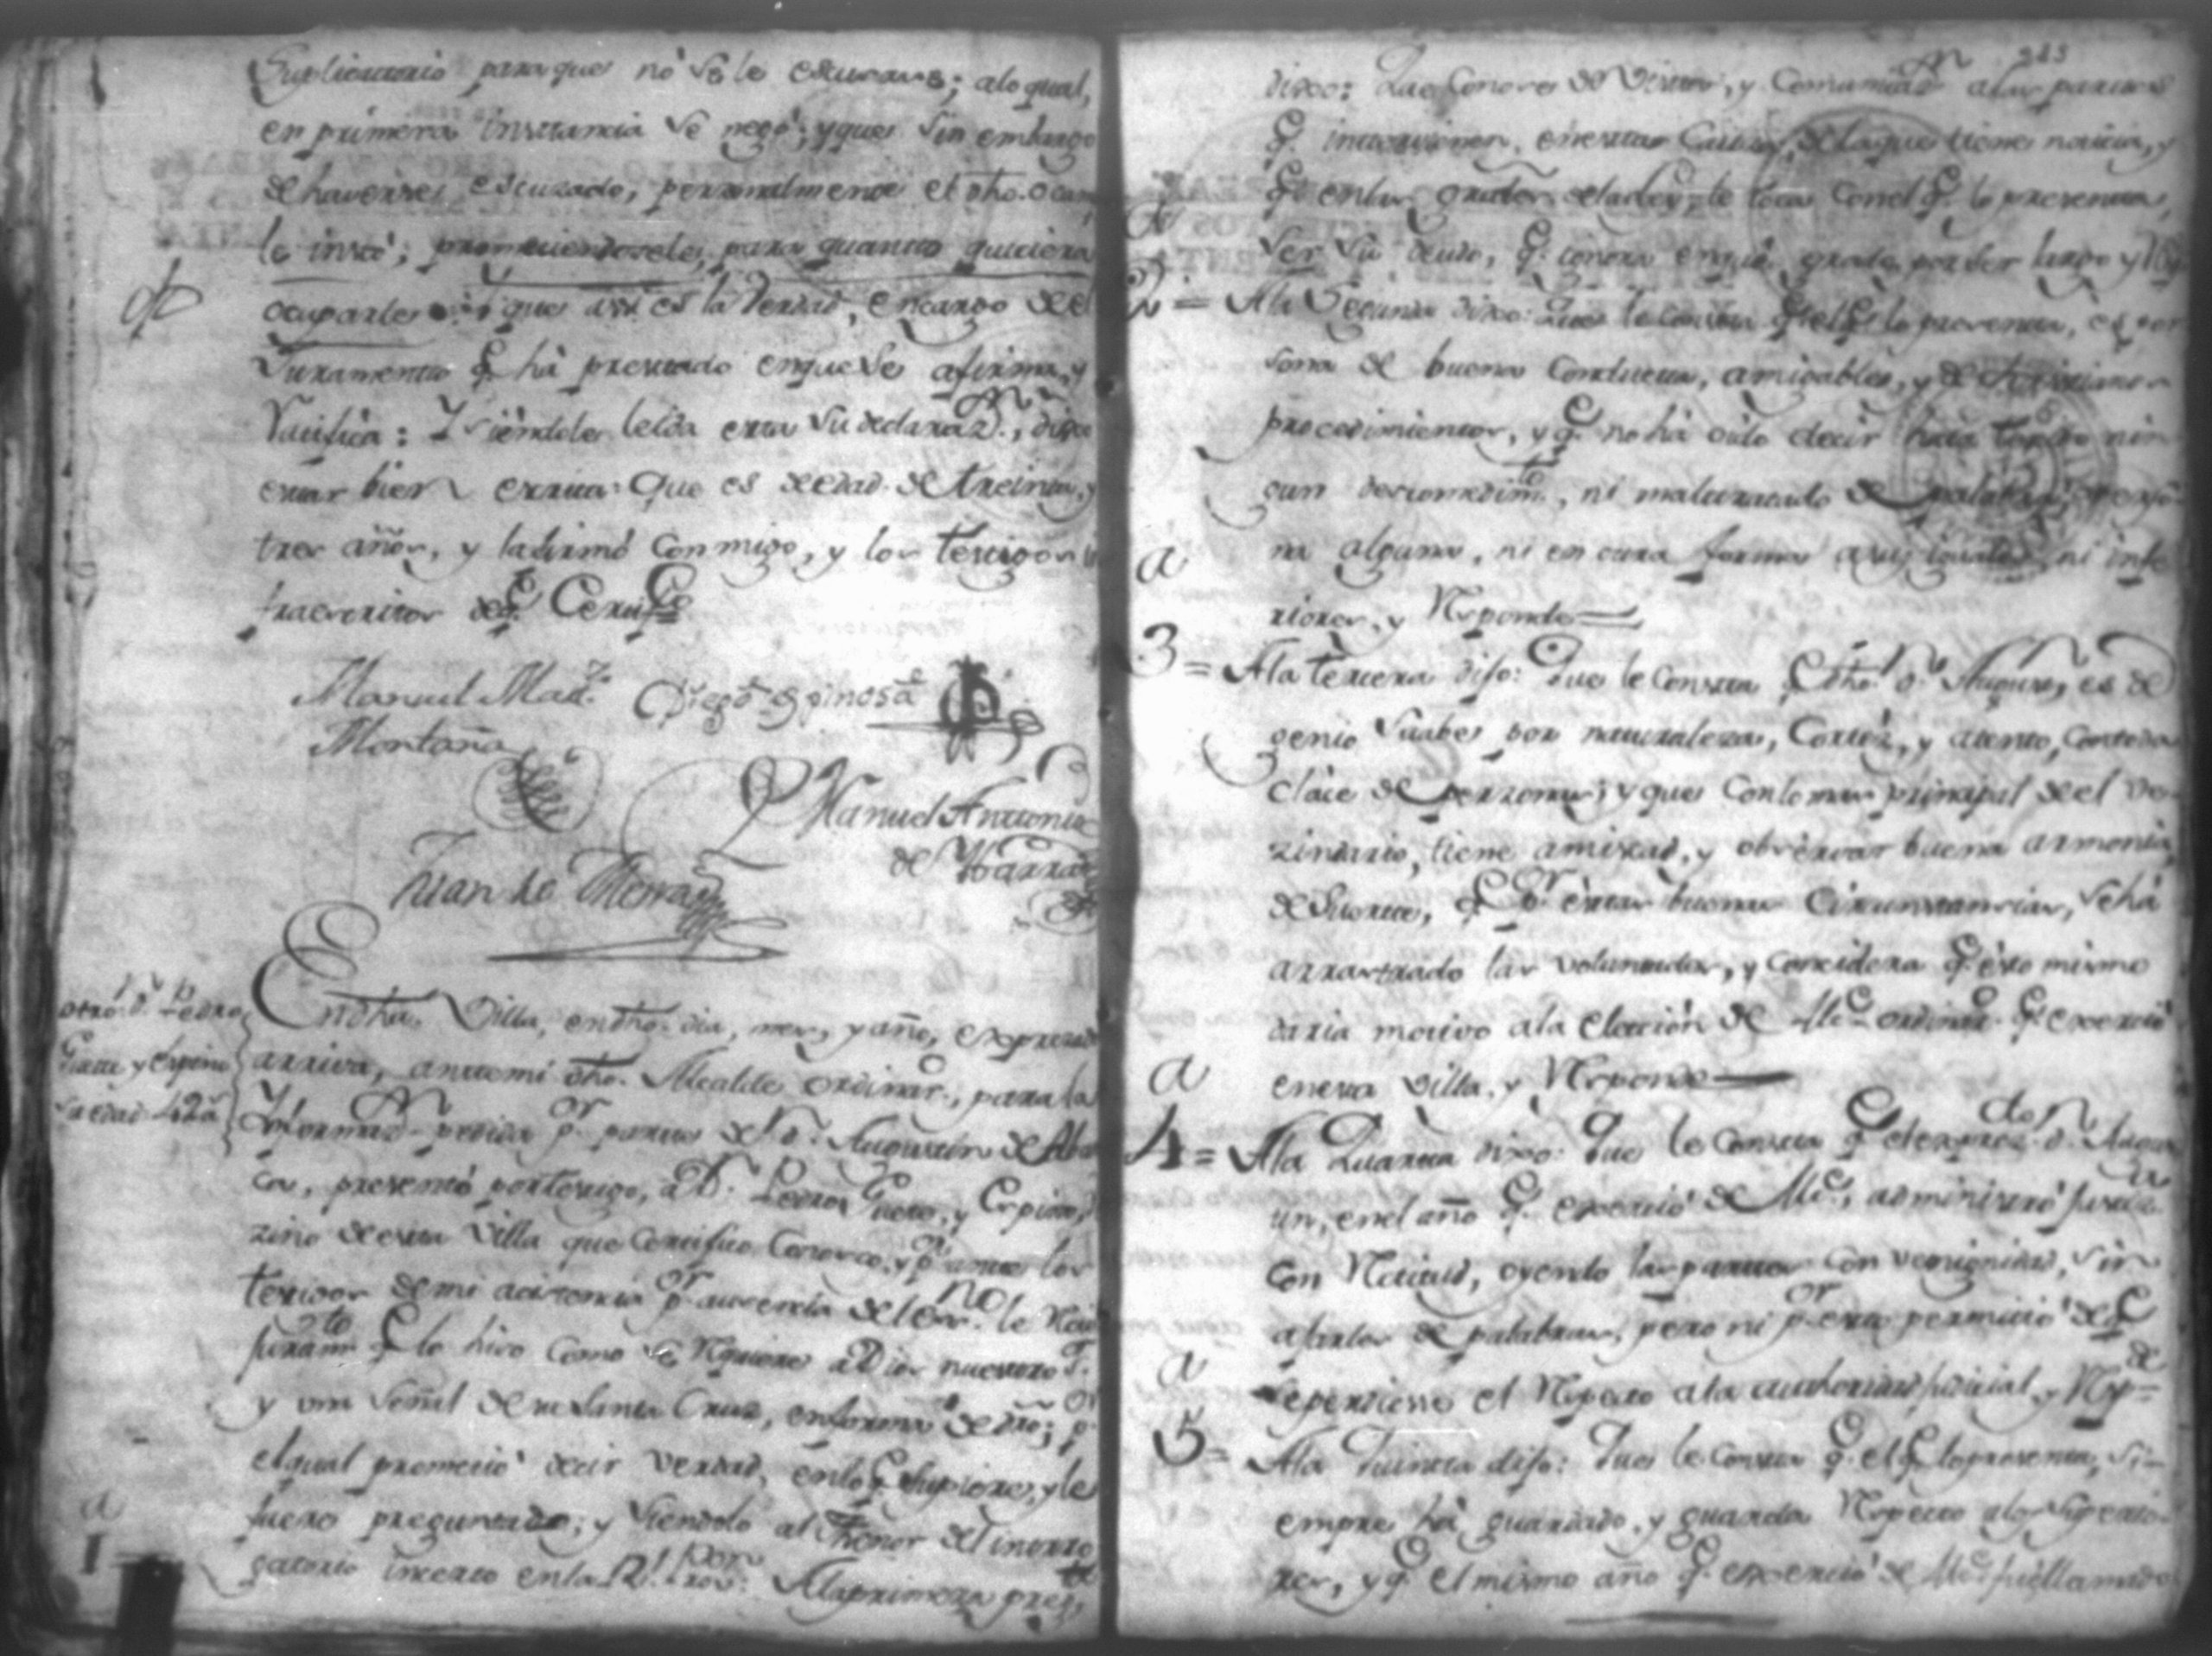 Suplicatorio para que nò se le escusara; alo qual,
en primera instancia se negó; y que sin embargo
de haverse escuzado, personalmente el dho.
le instó; prometiendosele, para quanto quiciera
ocuparle que assi es la Verdad, en cargo de el
Juramento q. hà prestado en que se afirma, y
Ratifica: Y siendole leida esta su declarazn., dijo
estar bien escrita: Que es de edad de treinta, y
tres años, y la firmó conmigo, y los testigos in
fraescritos de q. Certifco.
Manuel Mar.
Montaña
Diego Espinosa
Manuel Antonio
de Ybarra
Juan de Mena
otro Dn. Pedro
Guete y Espino
su edad 42 a.
En dha. Villa, en dho. dia, mes, y año, expresado
arriva, ante mi dho. Alcalde ordinar., para la
Ynformazn. pedida pr. parte de Dn. Augustin de
presentó por testigo, a Dn. Pedro y Espino,
zino de esta Villa que Certifico Conosco, y pr. ante los
testigos de mi acistencia pr. aucencia de Essno. le
Juramto. q. lo hiso como se Requiere a Dios nuestro S.
y una Señal de su Santa Cruz, en forma de dro; pr.
el qual prometió decir Verdad, en lo q. supiere, y le
fuere preguntado; y siendolo al Thenor del interro
gatorio incerto en la Rl. Provon: A la primera pregta.
1a
215
dixo: Que Conoce de Vista, y Comunicazn. a las partes
q. intervienen, en esta Causa, de la que tiene noticia, y
q. en los grados de la ley, le toca con el q. lo presenta,
ser su deudo, q. ignora en que grado por ser largo y
2a = A la Segunda dixo: Que le consta q. el q. lo presenta, es per
sona de buena Conducta, amigable, y de Christianos
procedimientos, y q. no hà oido decir nin
gun descomedimto., ni maltratado de palabras, perso
na alguna, ni en otra forma a sus iguales, ni infe
riores, y Responde
3a = A la tercera dijo: Que le Consta q. dho. Dn. Augusn, es de
genio suabe por naturaleza, Cortéz, y atento, con toda
clace de personas; y que con lo mas principal de el ve
zindario, tiene amistad, y observar buena armonia,
de suerte, q. pr. estas buenas Circunstancias, se hà
arrastrado las voluntades, y considera q. esto mismo
daria motivo ala elección de Alce. ordinaro. q. exerció
en esta Villa, y Responde
4a = A la Quarta dixo: Que le Consta q. el expresdo. Dn. August
in, en el año q. exerció de Alce., administró Justiza.
con Rectitud, oyendo las partes con venignidad, sin
afarlos de palabras, pero ni pr. esto permitió de q.
se perdiese el Respecto a la authoridad judicial, y Respde.
5a = A la Quinta dijo: Que le Consta q. el q. lo presenta, si-
empre hà guardado, y guarda Respecto a los Superio-
res, y q. el mismo año q. exerció de Alce. fué llamado